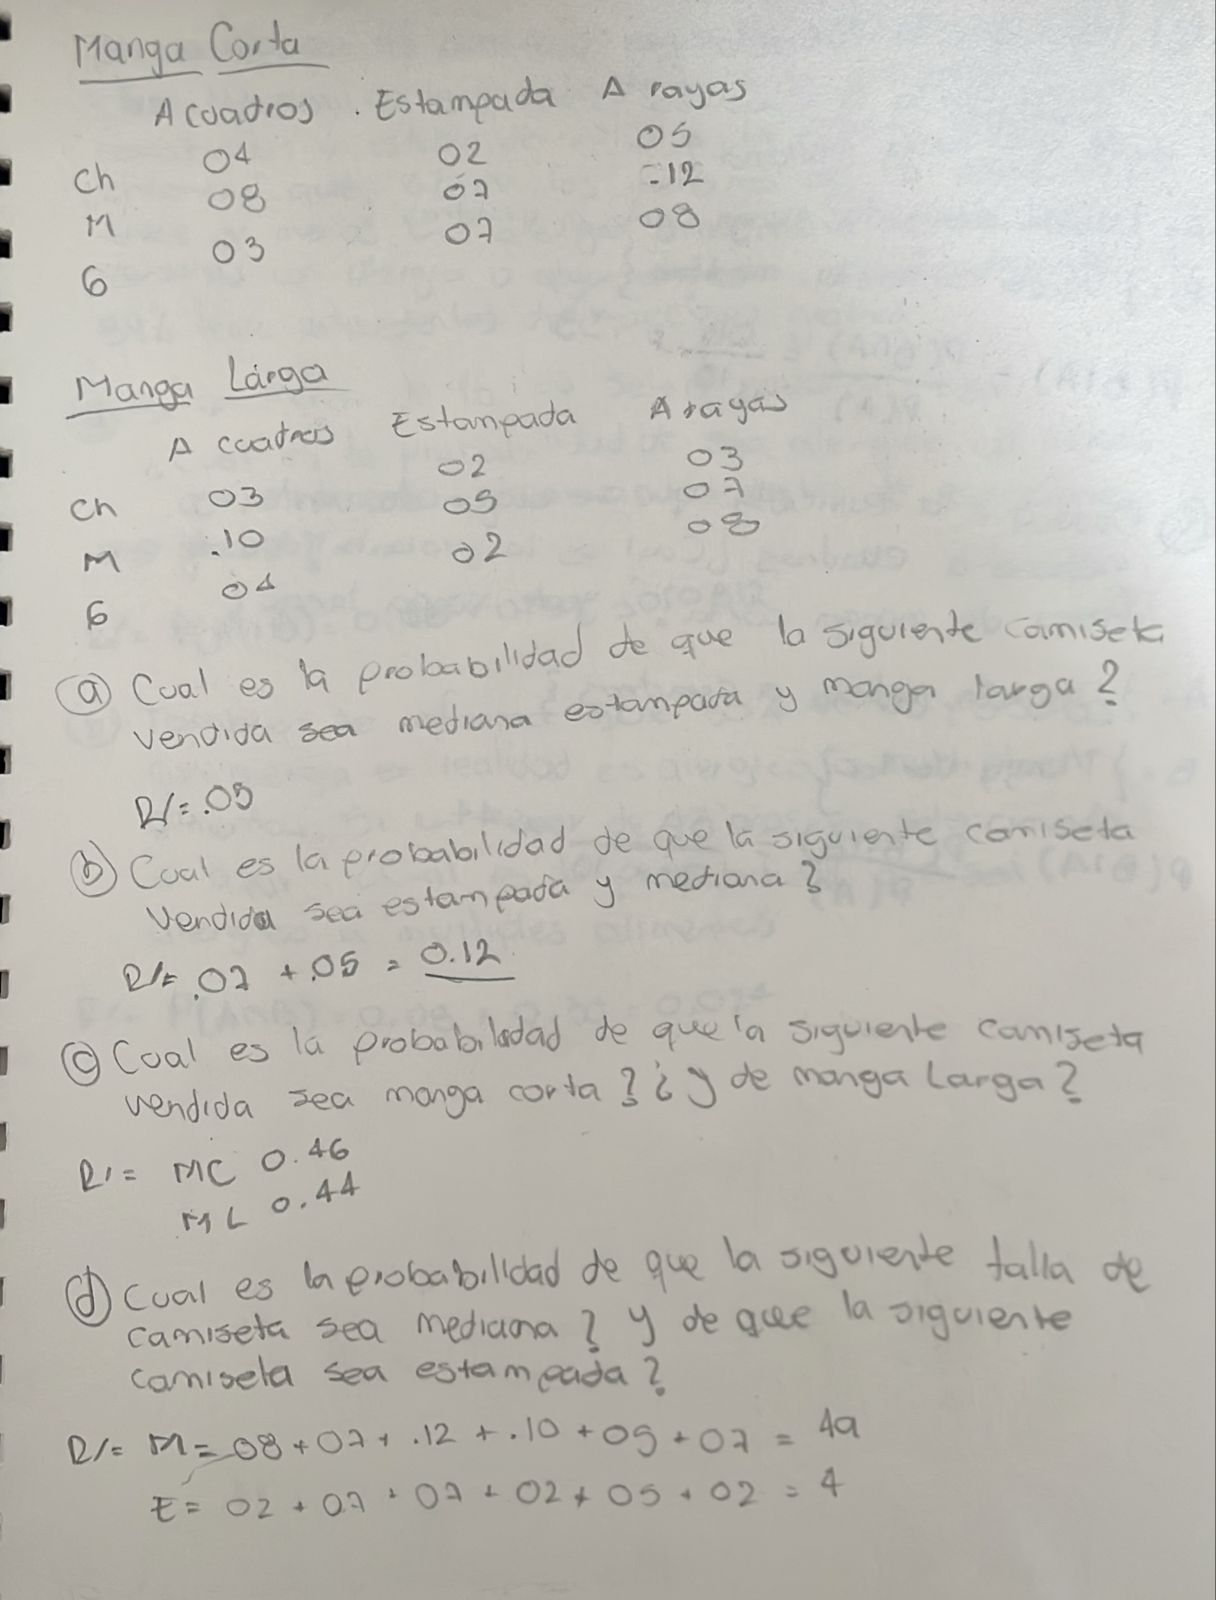 Manga Corta
A cuadros . Estampada A rayas
Ch 04 02 05
M 08 07 .12
G 03 07 08
Manga Larga
A cuadros Estampada A rayas
Ch 03 02 03
M .10 05 07
G 04 02 08
a) Cual es la probabilidad de que la siguiente camiseta
vendida sea mediana estampada y manga larga?
R/= .05
b) Cual es la probabilidad de que la siguiente camiseta
vendida sea estampada y mediana?
R/= .07 + .05 = 0.12
c) Cual es la probabilidad de que la siguiente camiseta
vendida sea manga corta? ¿y de manga Larga?
R/= MC 0.46
ML 0.44
d) Cual es la probabilidad de que la siguiente talla de
camiseta sea mediana? y de que la siguiente
camiseta sea estampada?
R/= M = 08 + 07 + .12 + .10 + 05 + 07 = 49
E = 02 + 07 + 07 + 02 + 05 + 02 = 4